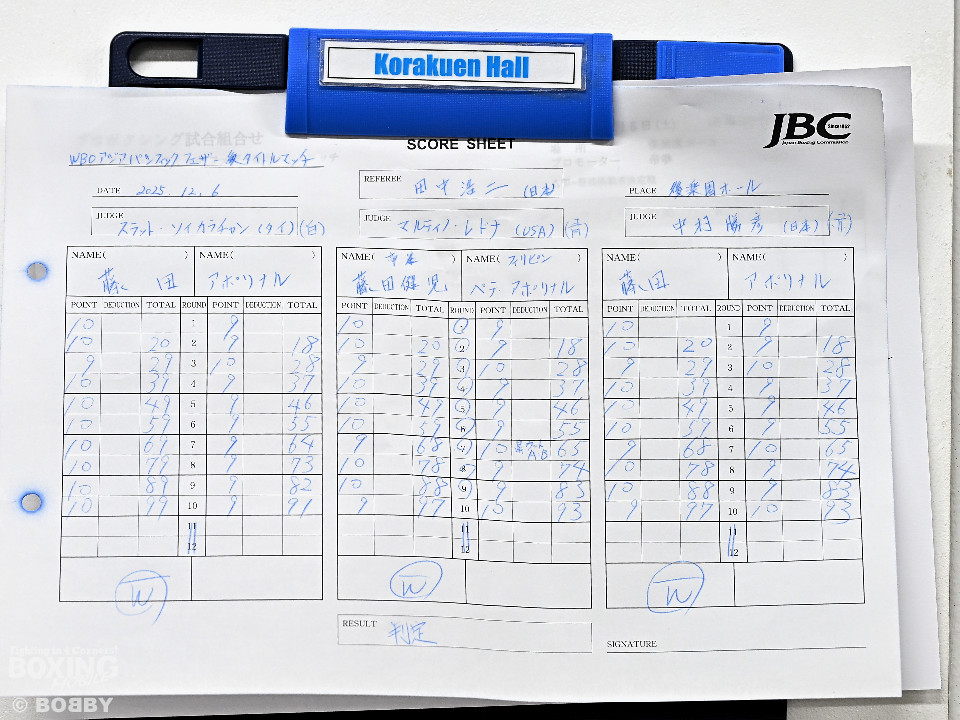 Korakuen Hall
SCORE SHEET
JBC
Since1952
Japan Boxing Commission
WBOアジアパシフィックフェザー級タイトルマッチ
DATE 2025.12.6
REFEREE 田中浩二 (日本)
PLACE 後楽園ホール
JUDGE スラット・ソイカラチャン (タイ) (白)
JUDGE マルティノ・レドナ (USA) (青)
JUDGE 中村勝彦 (日本) (赤)
NAME( ) NAME( ) NAME( 日本 ) NAME( フィリピン ) NAME( ) NAME( )
藤田 アポリナル 藤田健児 ペテ・アポリナル 藤田 アポリナル
POINT DEDUCTION TOTAL ROUND POINT DEDUCTION TOTAL POINT DEDUCTION TOTAL ROUND POINT DEDUCTION TOTAL POINT DEDUCTION TOTAL ROUND POINT DEDUCTION TOTAL
10 1 9 10 1 9 10 1 9
10 20 2 9 18 10 20 2 9 18 10 20 2 9 18
9 29 3 10 28 9 29 3 10 28 9 29 3 10 28
10 39 4 9 37 10 39 4 9 37 10 39 4 9 37
10 49 5 9 46 10 49 5 9 46 10 49 5 9 46
10 59 6 9 55 10 59 6 9 55 10 59 6 9 55
10 69 7 9 64 9 68 7 10 65 9 68 7 10 65
10 79 8 9 73 10 78 8 9 74 10 78 8 9 74
10 89 9 9 82 10 88 9 9 83 10 88 9 9 83
10 99 10 9 91 9 97 10 10 93 9 97 10 10 93
11 11 11
12 12 12
W W W
RESULT 判定
SIGNATURE
BOXING
© BOBBY